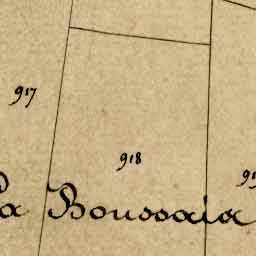 917
918
La Boussaia